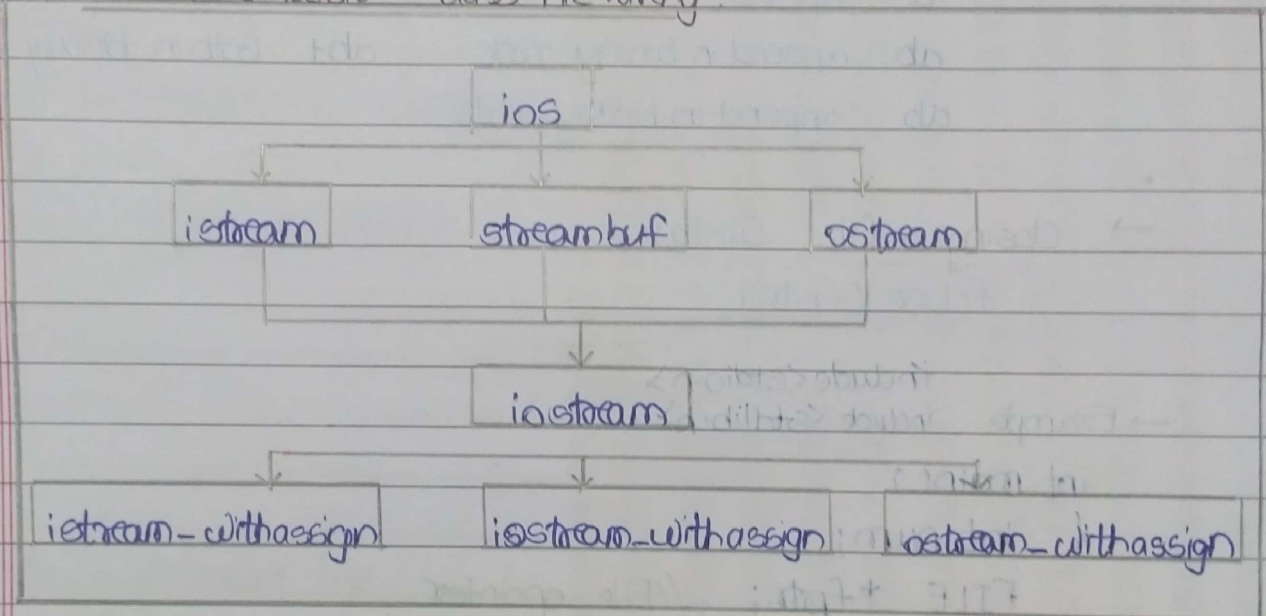 ios
istream streambuf ostream
iostream
istream_withassign iostream_withassign ostream_withassign